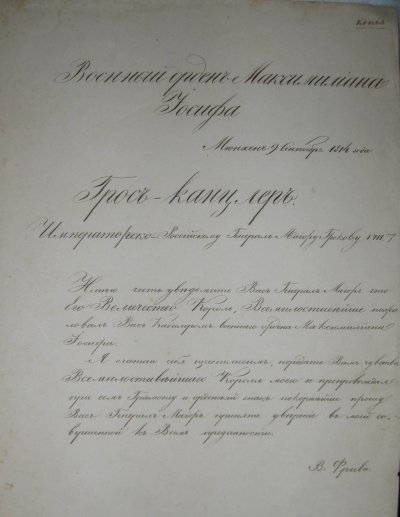 копія
Военный орденъ Максимиліана
Іосифа
Мюнхенъ 9 Сентябрь 1814 года
Гросъ-канцлеръ
Императорско-Россійскому Генералъ Маіору Грекову VIII му
Имѣю честь увѣдомить Васъ Генералъ Маіоръ что
Его Величество Король, Всемилостивѣйше пожа-
ловалъ Васъ Кавалеромъ военнаго ордена Максимиліана
Іосифа.
Я считаю себя щастливымъ, передать Вамъ чувства
Всемилостивѣйшаго Короля моего и препровождая
при семъ Грамоту и орденскій знакъ покорнѣйше прошу
Васъ Генералъ Маіоръ принять увѣреніе въ моей со-
вершенной къ Вамъ преданности.
В. Фреби.